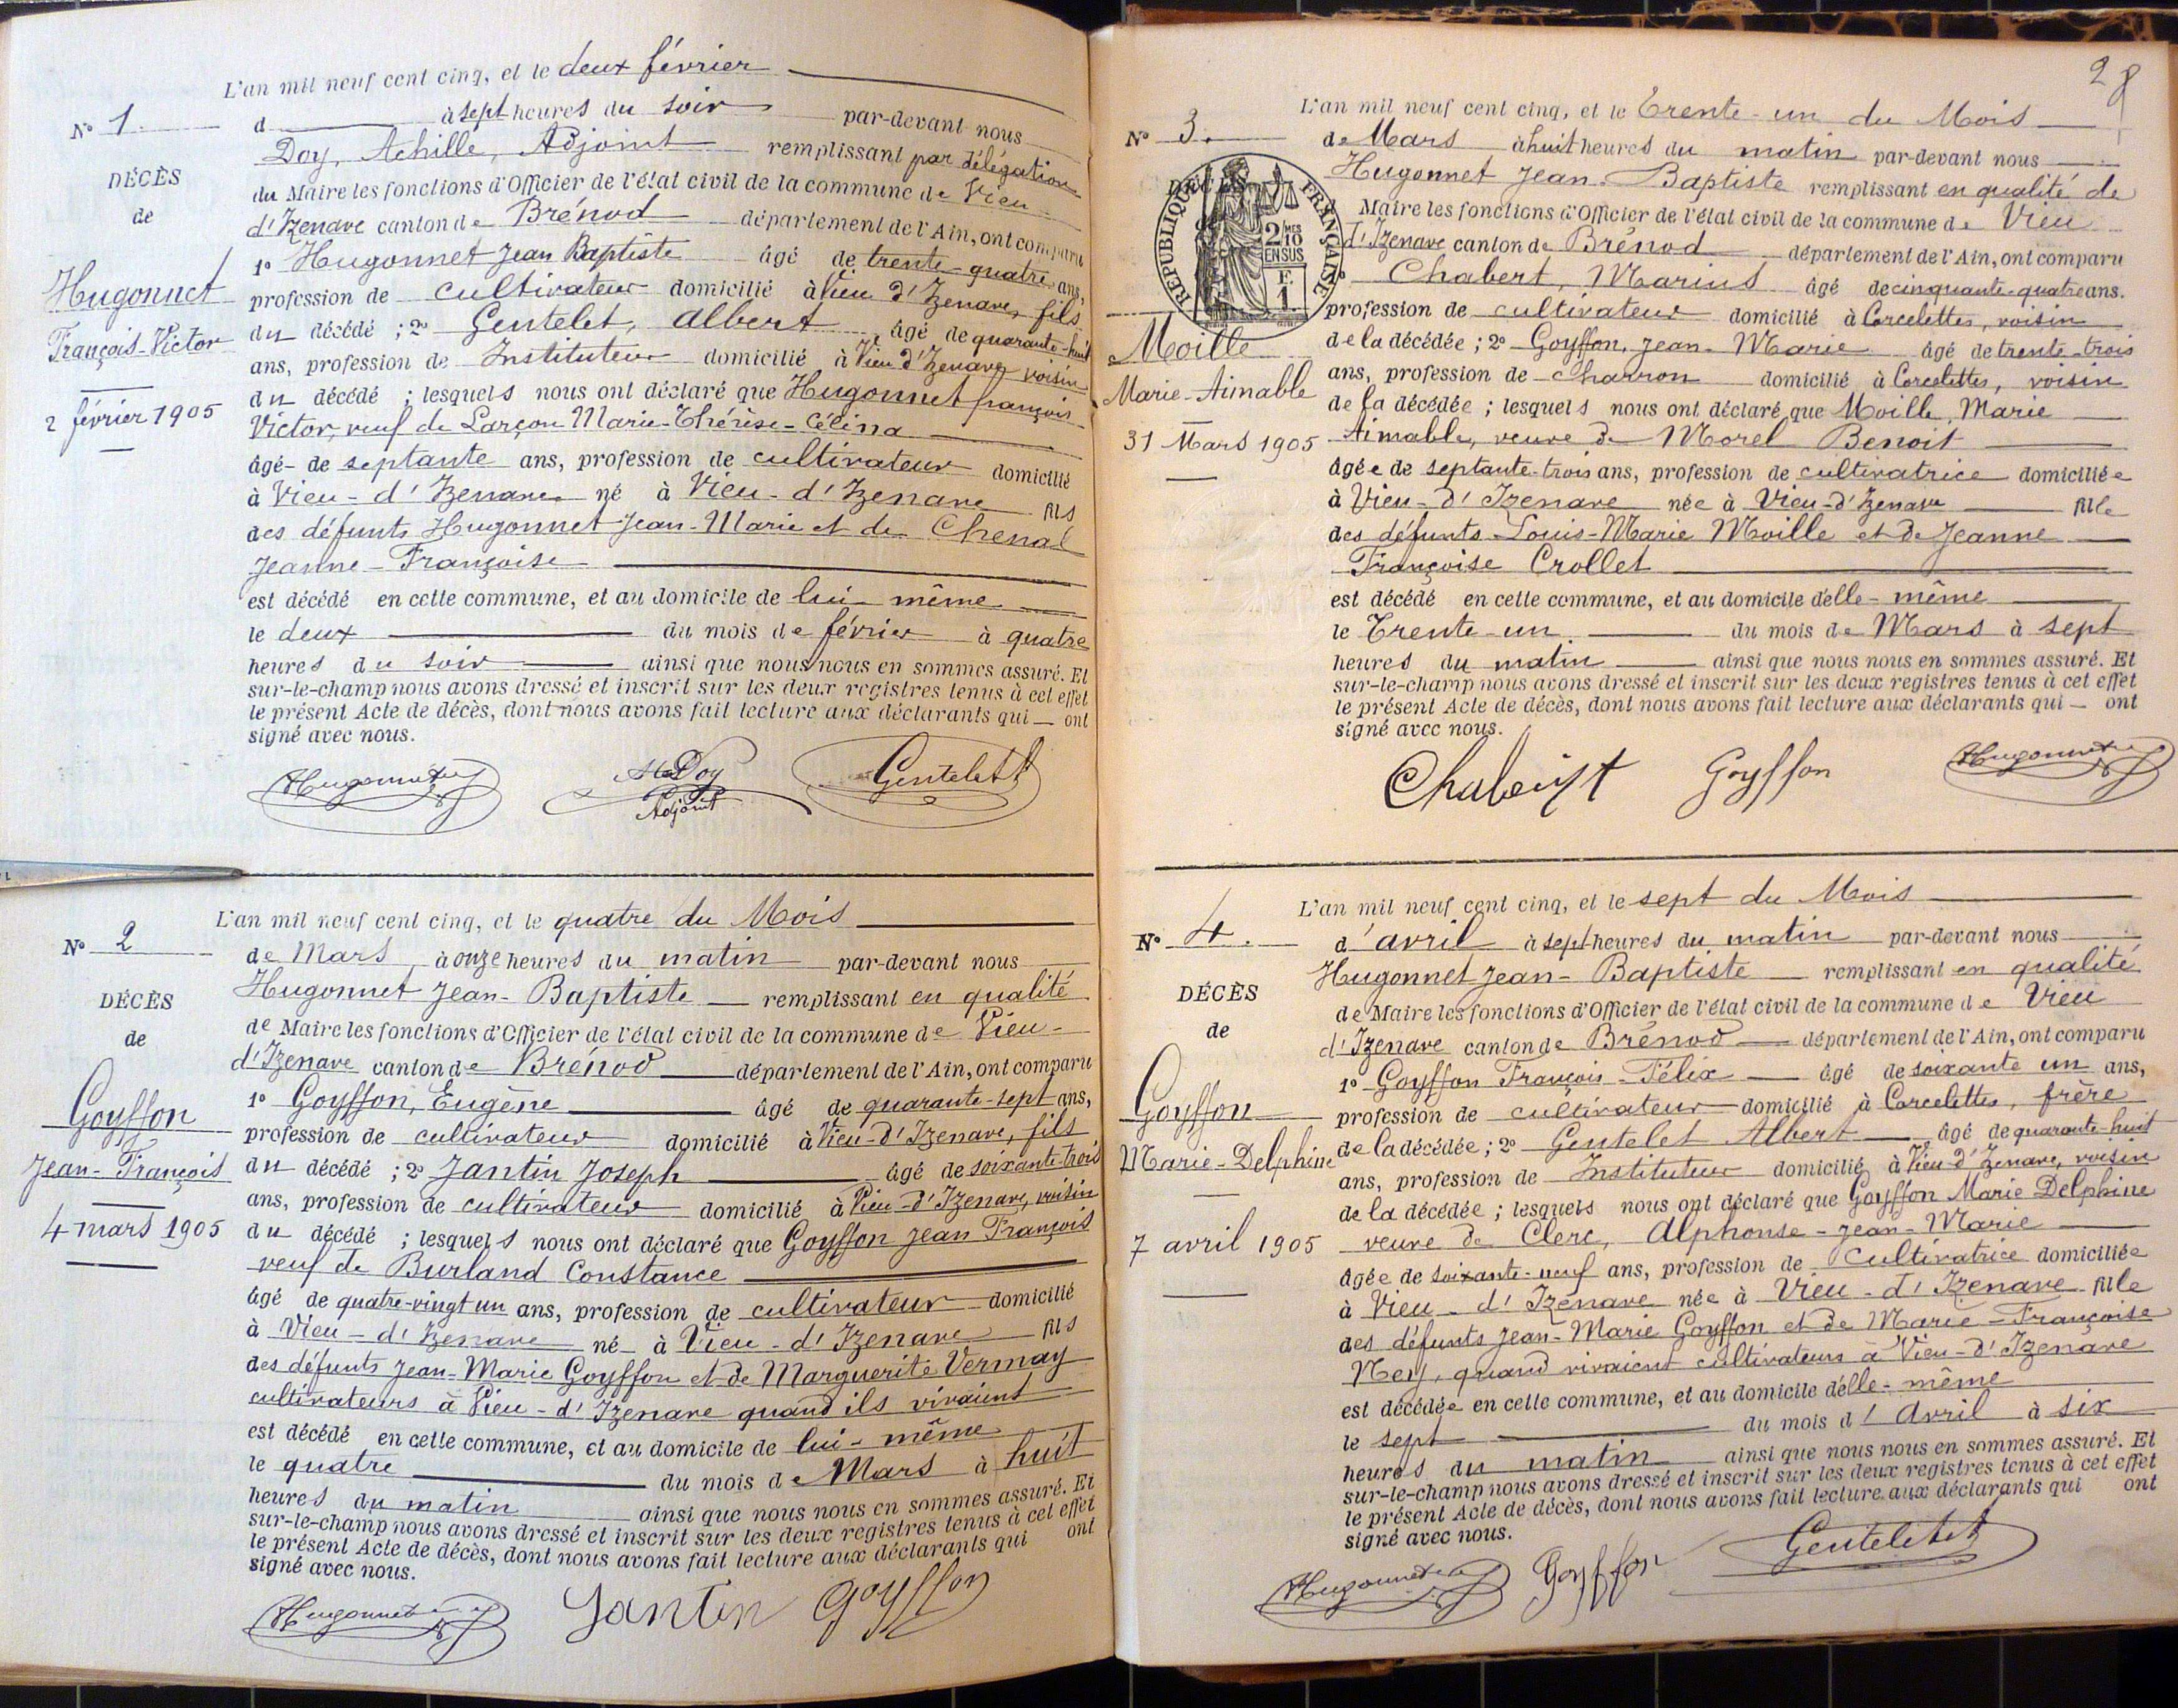 L'an mil neuf cent cinq, et le deux février
N° 1.
d à sept heures du soir par-devant nous
Doy, Achille, Adjoint remplissant par délégation
DÉCÈS
du Maire les fonctions d'Officier de l'état civil de la commune de Vieu
de
d'Izenave canton de Brénod département de l'Ain, ont comparu
1° Hugonnet Jean Baptiste âgé de trente-quatre ans,
Hugonnet
profession de cultivateur domicilié à Vieu d'Izenave, fils
François-Victor
du décédé ; 2° Gentelet, Albert âgé de quarante-huit
ans, profession de Instituteur domicilié à Vieu d'Izenave voisin
2 février 1905
du décédé ; lesquels nous ont déclaré que Hugonnet françois
Victor, veuf de Larçon Marie-Thérèse-Célina
âgé de septante ans, profession de cultivateur domicilié
à Vieu-d'Izenave né à Vieu-d'Izenave fils
des défunts Hugonnet Jean-Marie et de Chenal
Jeanne-Françoise
est décédé en cette commune, et au domicile de lui-même
le deux du mois de février à quatre
heures du soir ainsi que nous nous en sommes assuré. Et
sur-le-champ nous avons dressé et inscrit sur les deux registres tenus à cet effet
le présent Acte de décès, dont nous avons fait lecture aux déclarants qui — ont
signé avec nous.
Hugonnet Doy Gentelet
Adjoint
L'an mil neuf cent cinq, et le quatre du Mois
N° 2
de Mars à onze heures du matin par-devant nous
Hugonnet Jean-Baptiste remplissant en qualité
DÉCÈS
de Maire les fonctions d'Officier de l'état civil de la commune de Vieu-
de
d'Izenave canton de Brénod département de l'Ain, ont comparu
1° Goyffon, Eugène âgé de quarante-sept ans,
Goyffon
profession de cultivateur domicilié à Vieu-d'Izenave, fils
Jean-François
du décédé ; 2° Jantin Joseph âgé de soixante-trois
ans, profession de cultivateur domicilié à Vieu-d'Izenave, voisin
4 mars 1905
du décédé ; lesquels nous ont déclaré que Goyffon Jean François
veuf de Burland Constance
âgé de quatre-vingt un ans, profession de cultivateur domicilié
à Vieu-d'Izenave né à Vieu-d'Izenave fils
des défunts Jean-Marie Goyffon et de Marguerite Vermay
cultivateurs à Vieu-d'Izenave quand ils vivaient
est décédé en cette commune, et au domicile de lui-même
le quatre du mois de Mars à huit
heures du matin ainsi que nous nous en sommes assuré. Et
sur-le-champ nous avons dressé et inscrit sur les deux registres tenus à cet effet
le présent Acte de décès, dont nous avons fait lecture aux déclarants qui ont
signé avec nous.
Hugonnet Jantin Goyffon
28
L'an mil neuf cent cinq, et le Trente-un du Mois
N° 3.
de Mars à huit heures du matin par-devant nous
Hugonnet Jean-Baptiste remplissant en qualité de
DÉCÈS
RÉPUBLIQUE FRANÇAISE
2 MES 10 EN SUS
F. 1.
Maire les fonctions d'Officier de l'état civil de la commune de Vieu
d'Izenave canton de Brénod département de l'Ain, ont comparu
Chabert, Marius âgé de cinquante-quatre ans.
profession de cultivateur domicilié à Corcelettes, voisin
Moille
de la décédée ; 2° Goyffon, Jean-Marie âgé de trente-trois
Marie-Aimable
ans, profession de charron domicilié à Corcelettes, voisin
de la décédée ; lesquels nous ont déclaré que Moille, Marie
31 Mars 1905
Aimable, veuve de Morel Benoit
âgée de septante-trois ans, profession de cultivatrice domiciliée
à Vieu-d'Izenave née à Vieu-d'Izenave fille
des défunts Louis-Marie Moille et de Jeanne
Françoise Crollet
est décédé en cette commune, et au domicile d'elle-même
le Trente-un du mois de Mars à sept
heures du matin ainsi que nous nous en sommes assuré. Et
sur-le-champ nous avons dressé et inscrit sur les deux registres tenus à cet effet
le présent Acte de décès, dont nous avons fait lecture aux déclarants qui — ont
signé avec nous.
Goyffon Hugonnet
L'an mil neuf cent cinq, et le sept du Mois
N° 4.
d'avril à sept heures du matin par-devant nous
Hugonnet Jean-Baptiste remplissant en qualité
DÉCÈS
de Maire les fonctions d'Officier de l'état civil de la commune de Vieu
de
d'Izenave canton de Brénod département de l'Ain, ont comparu
1° Goyffon François-Félix âgé de soixante un ans,
Goyffon
profession de cultivateur domicilié à Corcelettes, frère
Marie-Delphine
de la décédée ; 2° Gentelet Albert âgé de quarante-huit
ans, profession de Instituteur domicilié à Vieu d'Izenave, voisin
de la décédée ; lesquels nous ont déclaré que Goyffon Marie Delphine
7 avril 1905
veuve de Clerc, Alphonse-Jean-Marie
âgée de soixante-neuf ans, profession de Cultivatrice domiciliée
à Vieu-d'Izenave née à Vieu-d'Izenave fille
des défunts Jean-Marie Goyffon et de Marie-Françoise
Ney, quand vivaient cultivateurs à Vieu-d'Izenave
est décédée en cette commune, et au domicile d'elle-même
le sept du mois d'Avril à six
heures du matin ainsi que nous nous en sommes assuré. Et
sur-le-champ nous avons dressé et inscrit sur les deux registres tenus à cet effet
le présent Acte de décès, dont nous avons fait lecture aux déclarants qui ont
signé avec nous.
Hugonnet Goyffon Gentelet